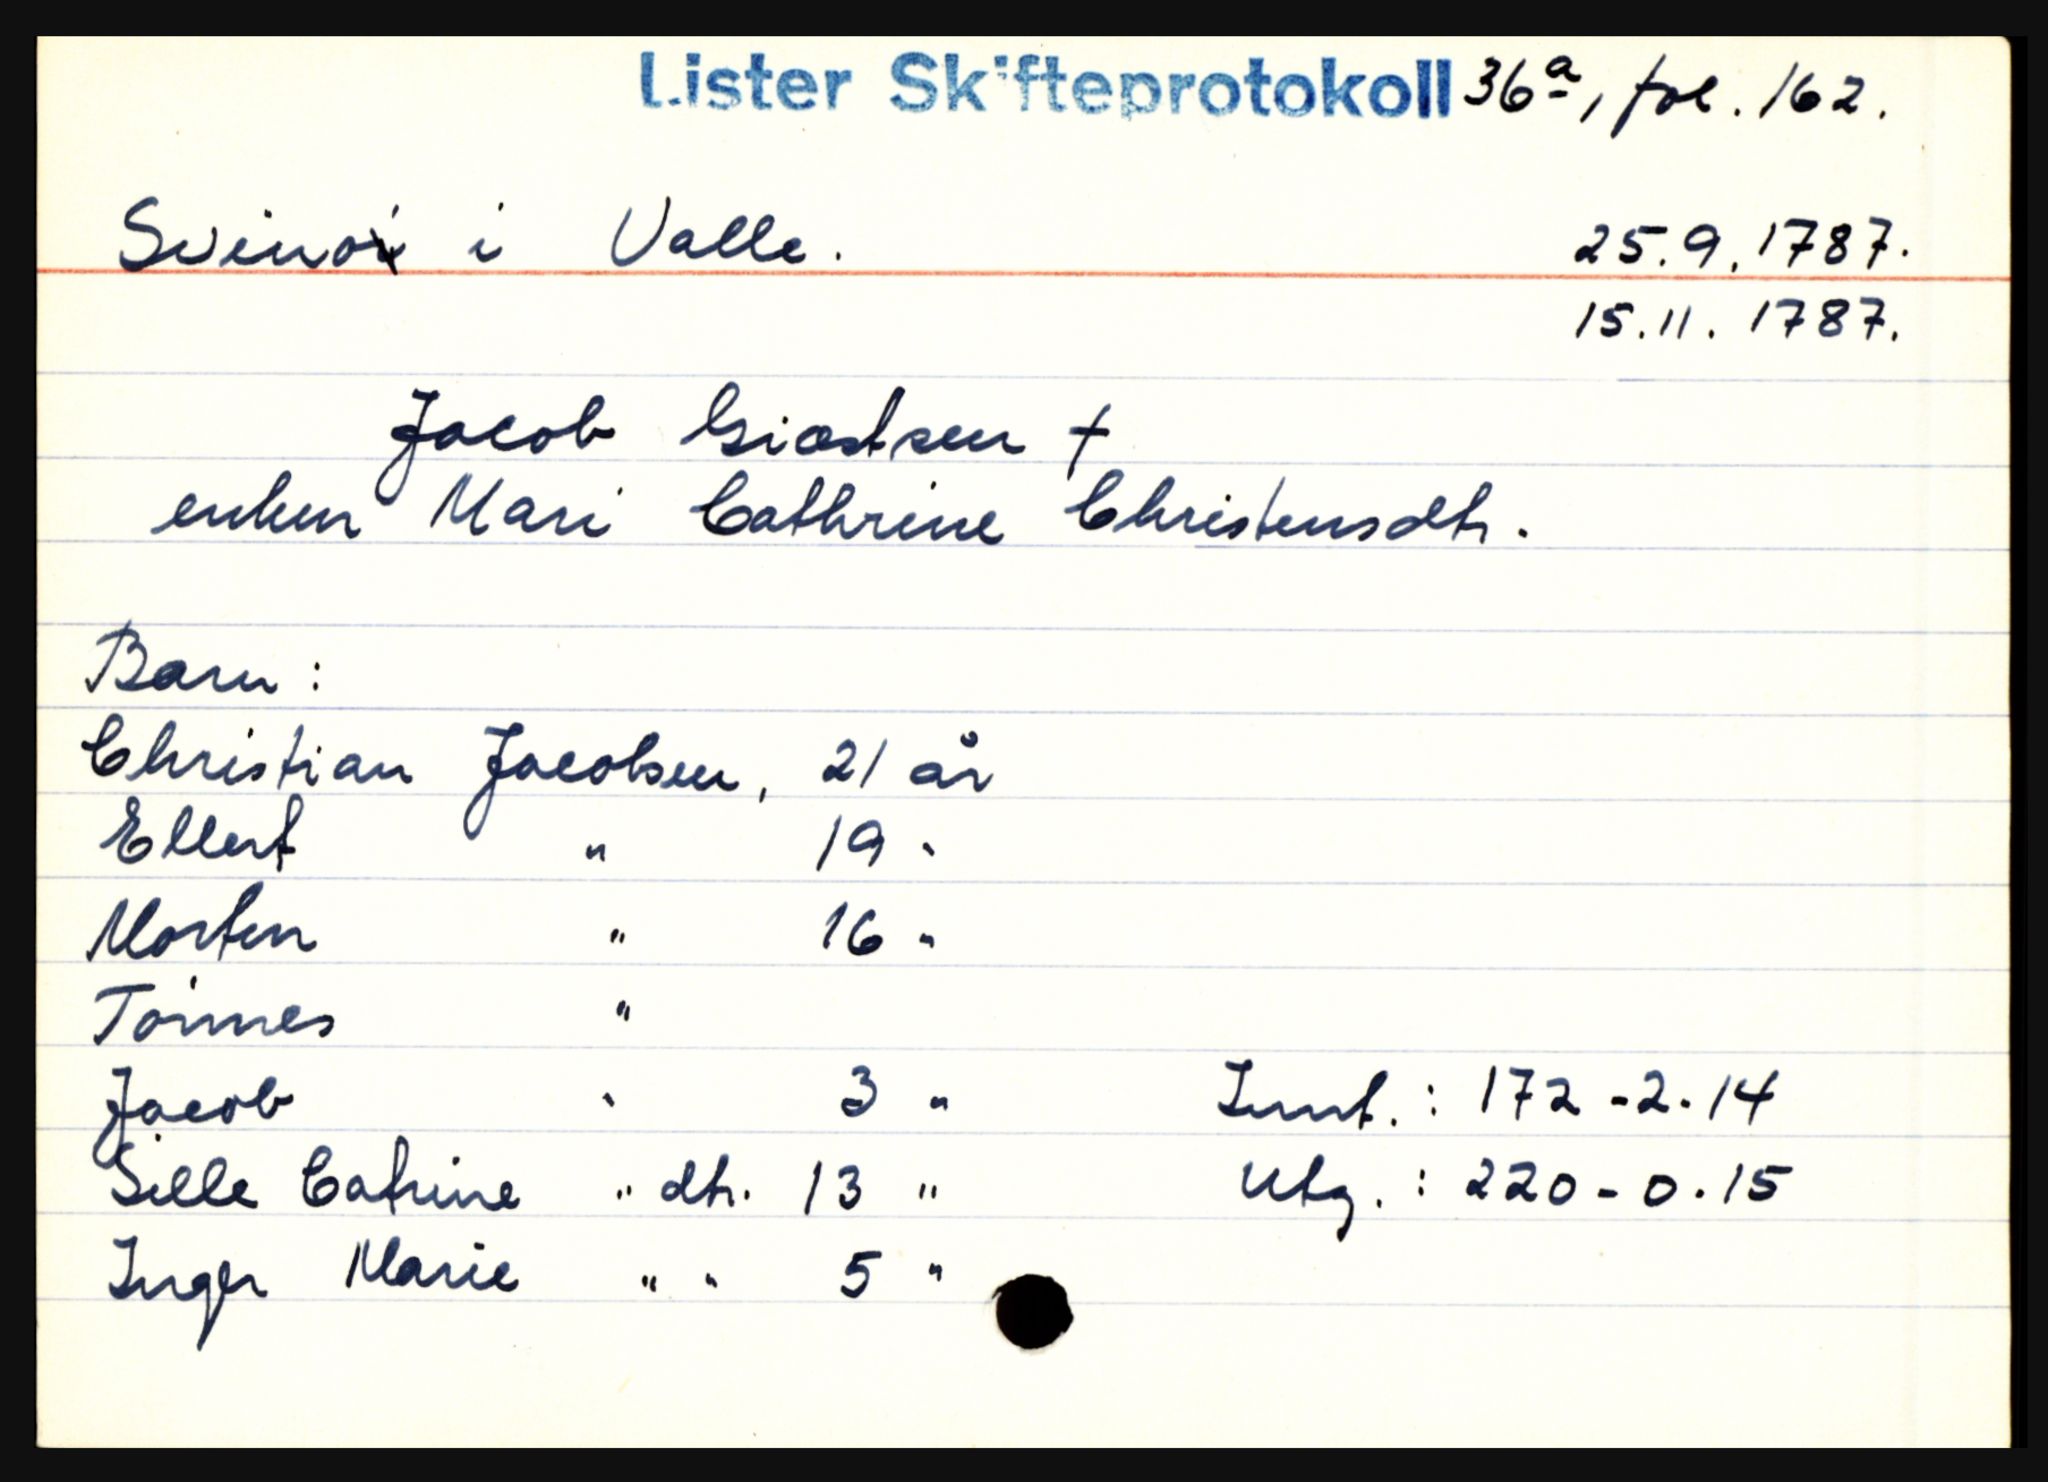 Lister Skifteprotokoll 36a, fol. 162.
Svinör i Valle. 25.9.1787.
15.11.1787.
Jacob Giæstsen †
enken Mari Cathrine Christensdtr.
Barn:
Christian Jacobsen, 21 år
Ellert " 19 "
Morten " 16 "
Tönnes "
Jacob " 3 " Innt.: 172-2-14
Sille Catrine " dtr. 13 " Utg.: 220-0-15
Inger Marie " " 5 "